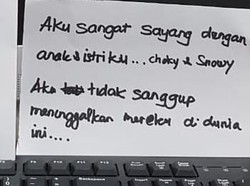 Aku sangat sayang dengan
anak & istri ku... Choky & Snowy
Aku tidak sanggup
meninggalkan mereka di dunia
ini....